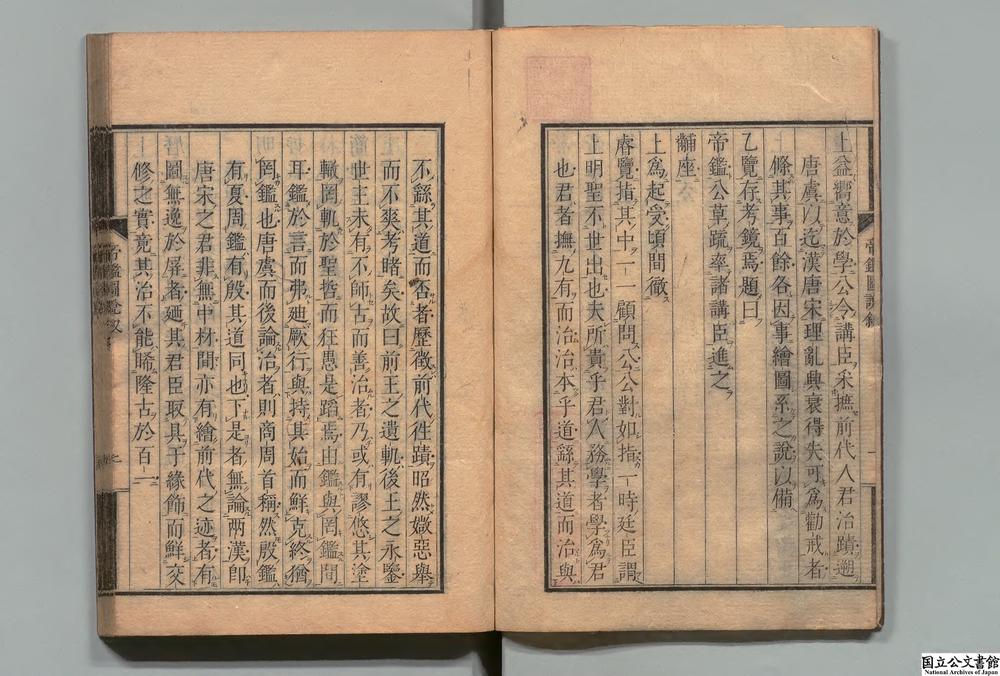 上益嚮意於學公令講臣采摭前代人君治蹟遡
唐虞以迄漢唐宋理亂興衰得失可爲勸戒者
條其事百餘各因事繪圖系之說以備
乙覽存考鏡焉題曰
帝鑑公草疏率諸講臣進之
黼座
上爲起受頃間徹
睿覽指其中一一顧問公公對如指一時廷臣謂
上明聖不世出也夫所貴乎君人務學者學爲君
也君者撫九有而治治本乎道繇其道而治與
帝鑑圖說敘
一
不繇其道而否者歷徵前代徃蹟昭然媺惡舉
而不爽考睹矣故曰前王之遺軌後王之永鑒
世主未有不師古而善治者乃或有謬悠其塗
轍罔軌於聖哲而狂愚是蹈焉由鑑與罔鑑間
耳鑑於言而弗廸厥行與持其始而鮮克終猶
罔鑑也唐虞而後論治者則商周首稱然殷鑑
有夏周鑑有殷其道同也下是者無論兩漢卽
唐宋之君非無中材間亦有繪前代之迹者有
圖無逸於屏者廼其君臣取具于緣飾而鮮交
修之實竟其治不能晞隆古於百一
帝鑑圖說叙
国立公文書館
National Archives of Japan